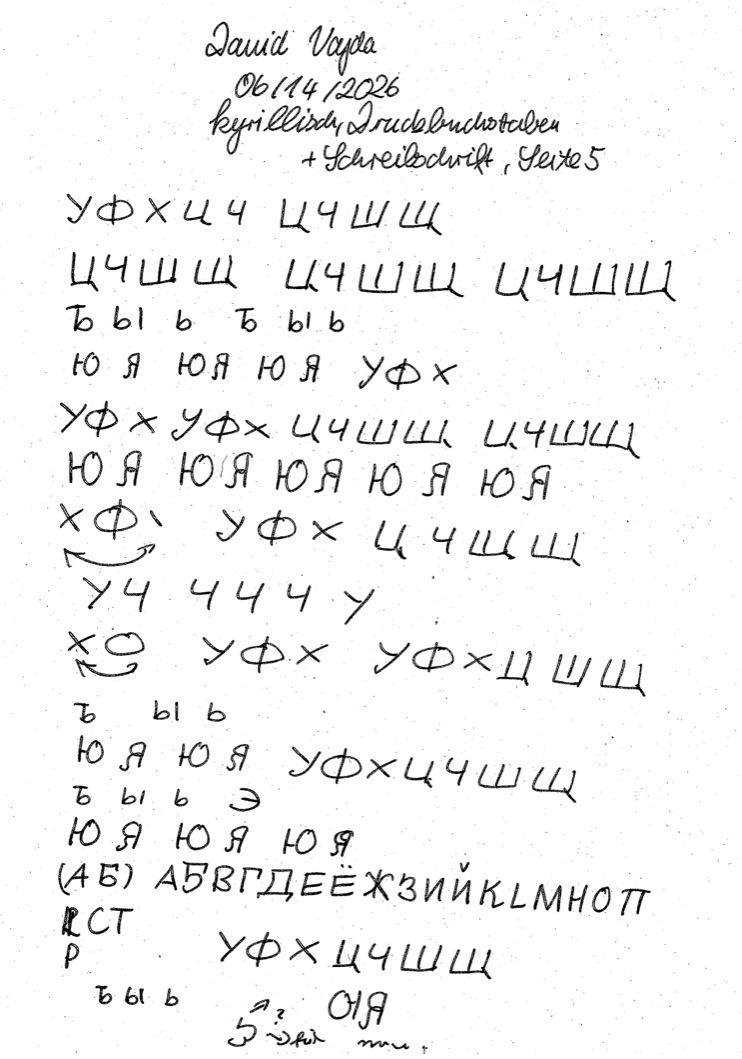 David Vajda
06/14/2026
kyrillisch, Druckbuchstaben
+ Schreibschrift, Seite 5
У Ф Х Ц Ч Ц Ч Ш Щ
Ц Ч Ш Щ Ц Ч Ш Щ Ц Ч Ш Щ
Ъ Ы Ь Ъ Ы Ь
Ю Я Ю Я Ю Я У Ф Х
У Ф Х У Ф Х Ц Ч Ш Щ Ц Ч Ш Щ
Ю Я Ю Я Ю Я Ю Я Ю Я
Х Ф У Ф Х Ц Ч Щ Щ
У Ч Ч Ч Ч У
Х О У Ф Х У Ф Х Ц Ш Щ
Ъ Ы Ь
Ю Я Ю Я У Ф Х Ц Ч Ш Щ
Ъ Ы Ь Э
Ю Я Ю Я Ю Я
(А Б) А Б В Г Д Е Ё Ж З И Й К L М Н О П
С Т
Р У Ф Х Ц Ч Ш Щ
Ъ Ы Ь
?